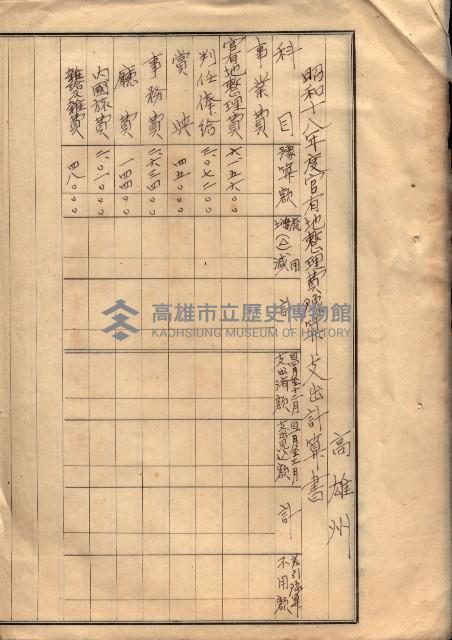 昭和十八年度官有地整理費豫算支出計算書
高雄州
科目
豫算額
流用
增(△)減
計
自四月至十二月
支出濟額
自一月至三月
支出見込額
計
差引豫算
不用額
事業費
官有地整理費 六、一五六〇〇
判任俸給 三、〇七二〇〇
賞典 四五〇〇〇
事務費 二、六三四〇〇
廳費 一四四〇〇
內國旅費 二、〇一〇〇〇
雜給及雜費 四八〇〇〇
高雄市立歷史博物館
KAOHSIUNG MUSEUM OF HISTORY